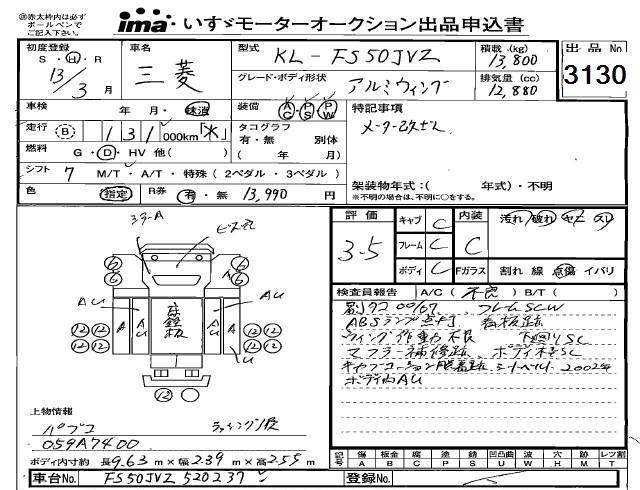 ※赤太枠内は必ず
ボールペンで
ご記入下さい。
ima いすゞモーターオークション出品申込書
初度登録
S・H・R
13/3 月
車名
三菱
型式
KL-FS50JVZ
グレード・ボディ形状
アルミウィング
積載 (kg)
13,800
排気量 (cc)
12,880
出品No.
3130
車検 年 月・抹消
装備 AC PS PW
特記事項
メーター改ざん
走行 (B) 131,000km「*」
タコグラフ
有・無 別体
( 年 月)
燃料 G・D・HV 他( )
シフト 7 M/T・A/T・特殊(2ペダル・3ペダル)
架装物年式:( 年式)・不明
※不明の場合は、不明に○をする。
色 指定 R券 有・無 13,990 円
評価
3.5
キャブ C
フレーム C
ボディ C
内装 C
汚れ 破れ
Fガラス 割れ 線 点傷 イバリ
検査員報告 A/C(不良) B/T( )
フレームSCW
ABSランプ点灯 看板跡
ウィング作動不良 下廻りSC
マフラー補修跡、ボディ
ボディ内AU
コラーA
ビス穴
AU
AU
A
AU
AU
A
U
縞鉄板
6
6
6
6
12 12
12 12
12 12
12 12
12
上物情報
パブコ
059A7400
ボディ内寸約 長9.63m×幅2.39m×高2.55m
記号
傷 A
板金 B
腐 C
塗 P
錆 S
凹凸曲 U
波 W
穴 H
跡 M
レツ割 T
車台No. FS50JVZ 520237
登録No.